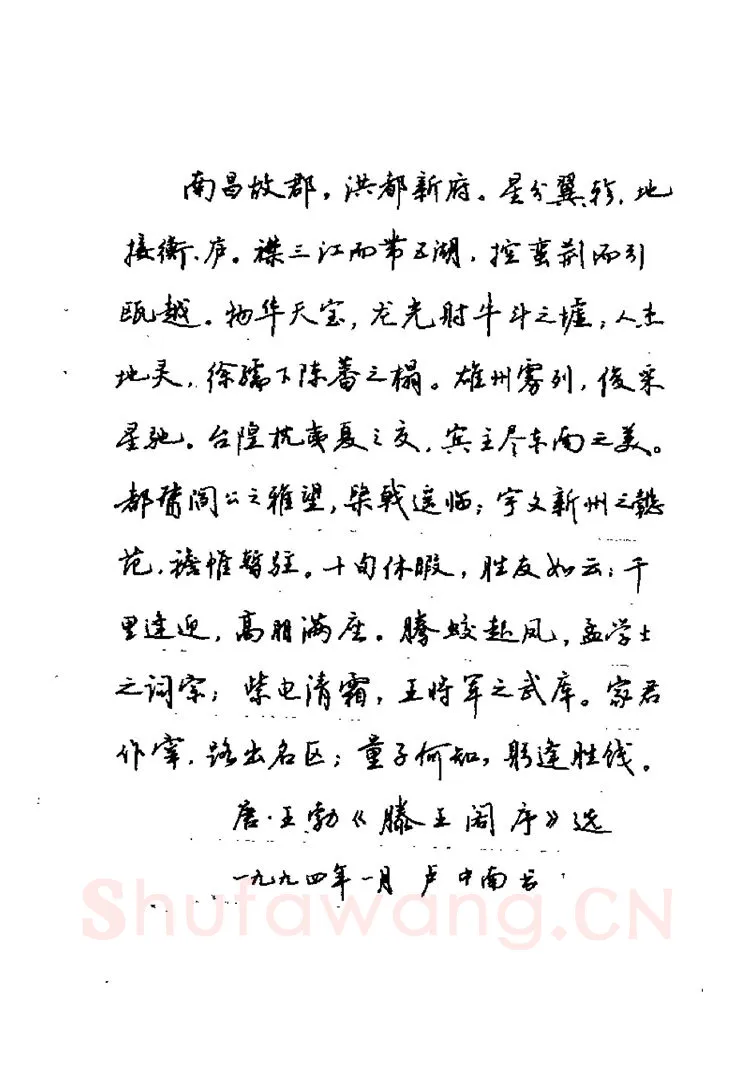 南昌故郡，洪都新府。星分翼轸，地
接衡、庐。襟三江而带五湖，控蛮荆而引
瓯越。物华天宝，龙光射牛斗之墟；人杰
地灵，徐孺下陈蕃之榻。雄州雾列，俊采
星驰。台隍枕夷夏之交，宾主尽东南之美。
都督阎公之雅望，棨戟遥临；宇文新州之懿
范，襜帷暂驻。十旬休暇，胜友如云；千
里逢迎，高朋满座。腾蛟起凤，孟学士
之词宗；紫电清霜，王将军之武库。家君
作宰，路出名区；童子何知，躬逢胜饯。
唐·王勃《滕王阁序》选
一九九四年一月 卢中南书
Shufawang.CN